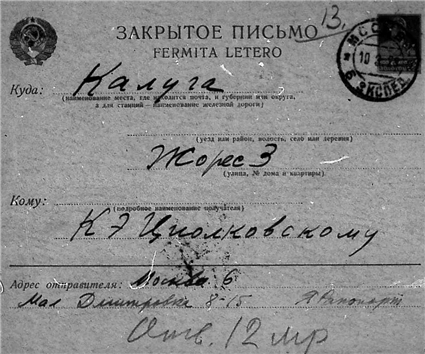 13.
ЗАКРЫТОЕ ПИСЬМО
FERMITA LETERO
МОСКВА
10
6 ЭКСПЕД.
Куда: Калуга
(наименование места, где находится почта, и губернии или округа,
а для станций – наименование железной дороги)
(уезд или район, волость, село или деревня)
Жорес 3
(улица, № дома и квартиры)
Кому:
(подробное наименование получателя)
К Э Циолковскому
Адрес отправителя: Москва 6
Мал Дмитровка 8-15 Я Рапопорт
Отв. 12 мр